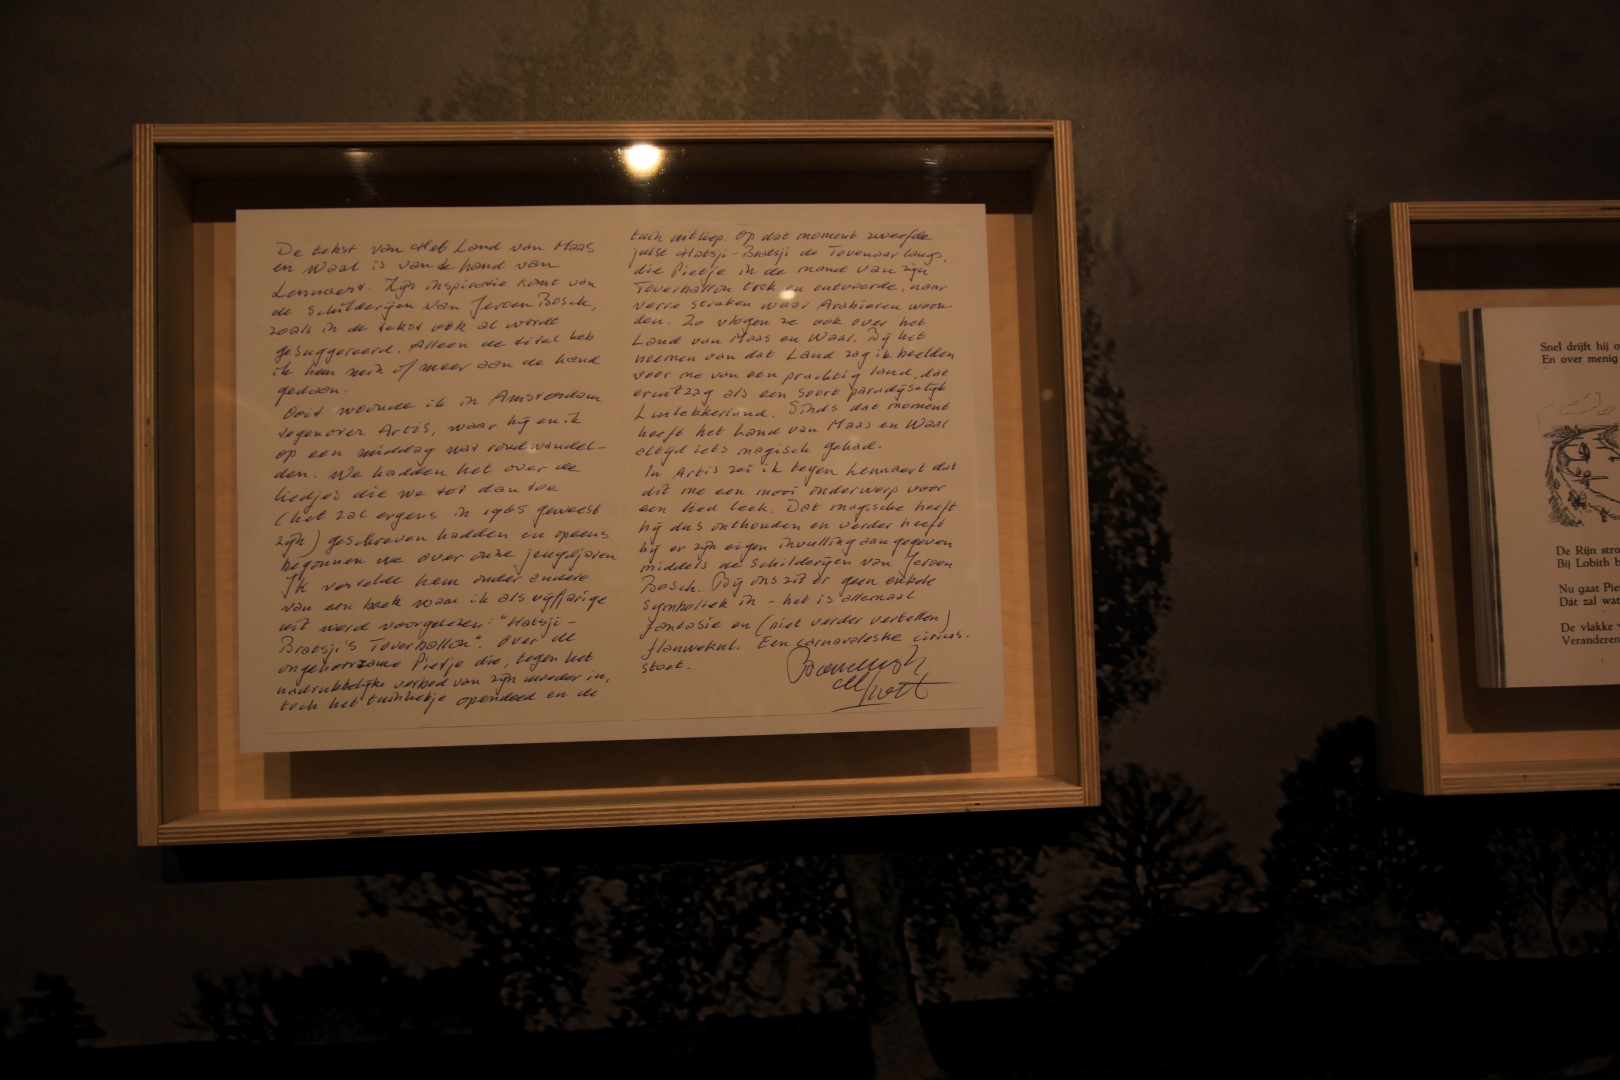 De tekst van Het Land van Maas
en Waal is van de hand van
Lennaert. Zijn inspiratie komt van
de schilderijen van Jeroen Bosch,
zoals in de tekst ook al wordt
gesuggereerd. Alleen de titel heb
ik hem min of meer aan de hand
gedaan.
Ooit woonde ik in Amsterdam
tegenover Artis, waar hij en ik
op een middag wat rondwandel-
den. We hadden het over de
liedjes die we tot dan toe
(het zal ergens in 1965 geweest
zijn) geschreven hadden en opeens
begonnen we over onze jeugdjaren.
Ik vertelde hem onder andere
van een boek waar ik als vijfjarige
uit werd voorgelezen: "Hatsji-
Bratsji's Toverballon". Over de
ongehoorzame Pietje die, tegen het
nadrukkelijke verbod van zijn moeder in,
toch het tuinhekje opendeed en de
tuin uitliep. Op dat moment zweefde
juist Hatsji-Bratsji de Tovenaar langs,
die Pietje in de mand van zijn
Toverballon trok en ontvoerde, naar
verre streken waar Arabieren woon-
den. Zo vlogen ze ook over het
Land van Maas en Waal. Bij het
noemen van dat Land zag ik beelden
voor me van een prachtig land, dat
eruitzag als een soort paradijselijk
Luilekkerland. Sinds dat moment
heeft het Land van Maas en Waal
altijd iets magisch gehad.
In Artis zei ik tegen Lennaert dat
dit me een mooi onderwerp voor
een lied leek. Dat magische heeft
hij dus onthouden en verder heeft
hij er zijn eigen invulling aan gegeven
middels de schilderijen van Jeroen
Bosch. Bij ons zit er geen enkele
symboliek in - het is allemaal
fantasie en (niet verder vertellen)
flauwekul. Een carnavaleske circus-
stoet.
Boudewijn
de Groot
Snel drijft hij o
En over menig
De Rijn stro
Bij Lobith b
Nu gaat Pie
Dát zal wat
De vlakke
Veranderen